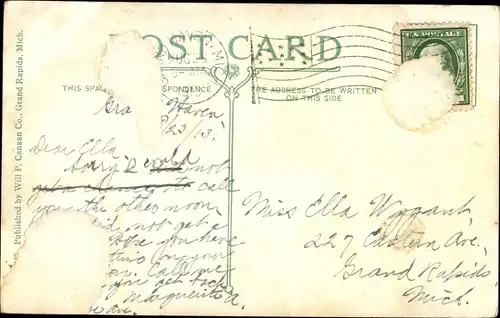 POST CARD
THIS SPA
RESPONDENCE
E ADDRESS TO BE WRITTEN
ON THIS SIDE
U.S. POSTAGE
Published by Will P. Canaan Co., Grand Rapids, Mich.
Gra Haven
8/23/13.
Dear Ella
Sorry I could not
get a chance to call
you the other noon
did not get a
you here
this
Call me
you get back
Marguerite A.
Miss Ella Wygant,
227 Eastern Ave.,
Grand Rapids,
Mich.